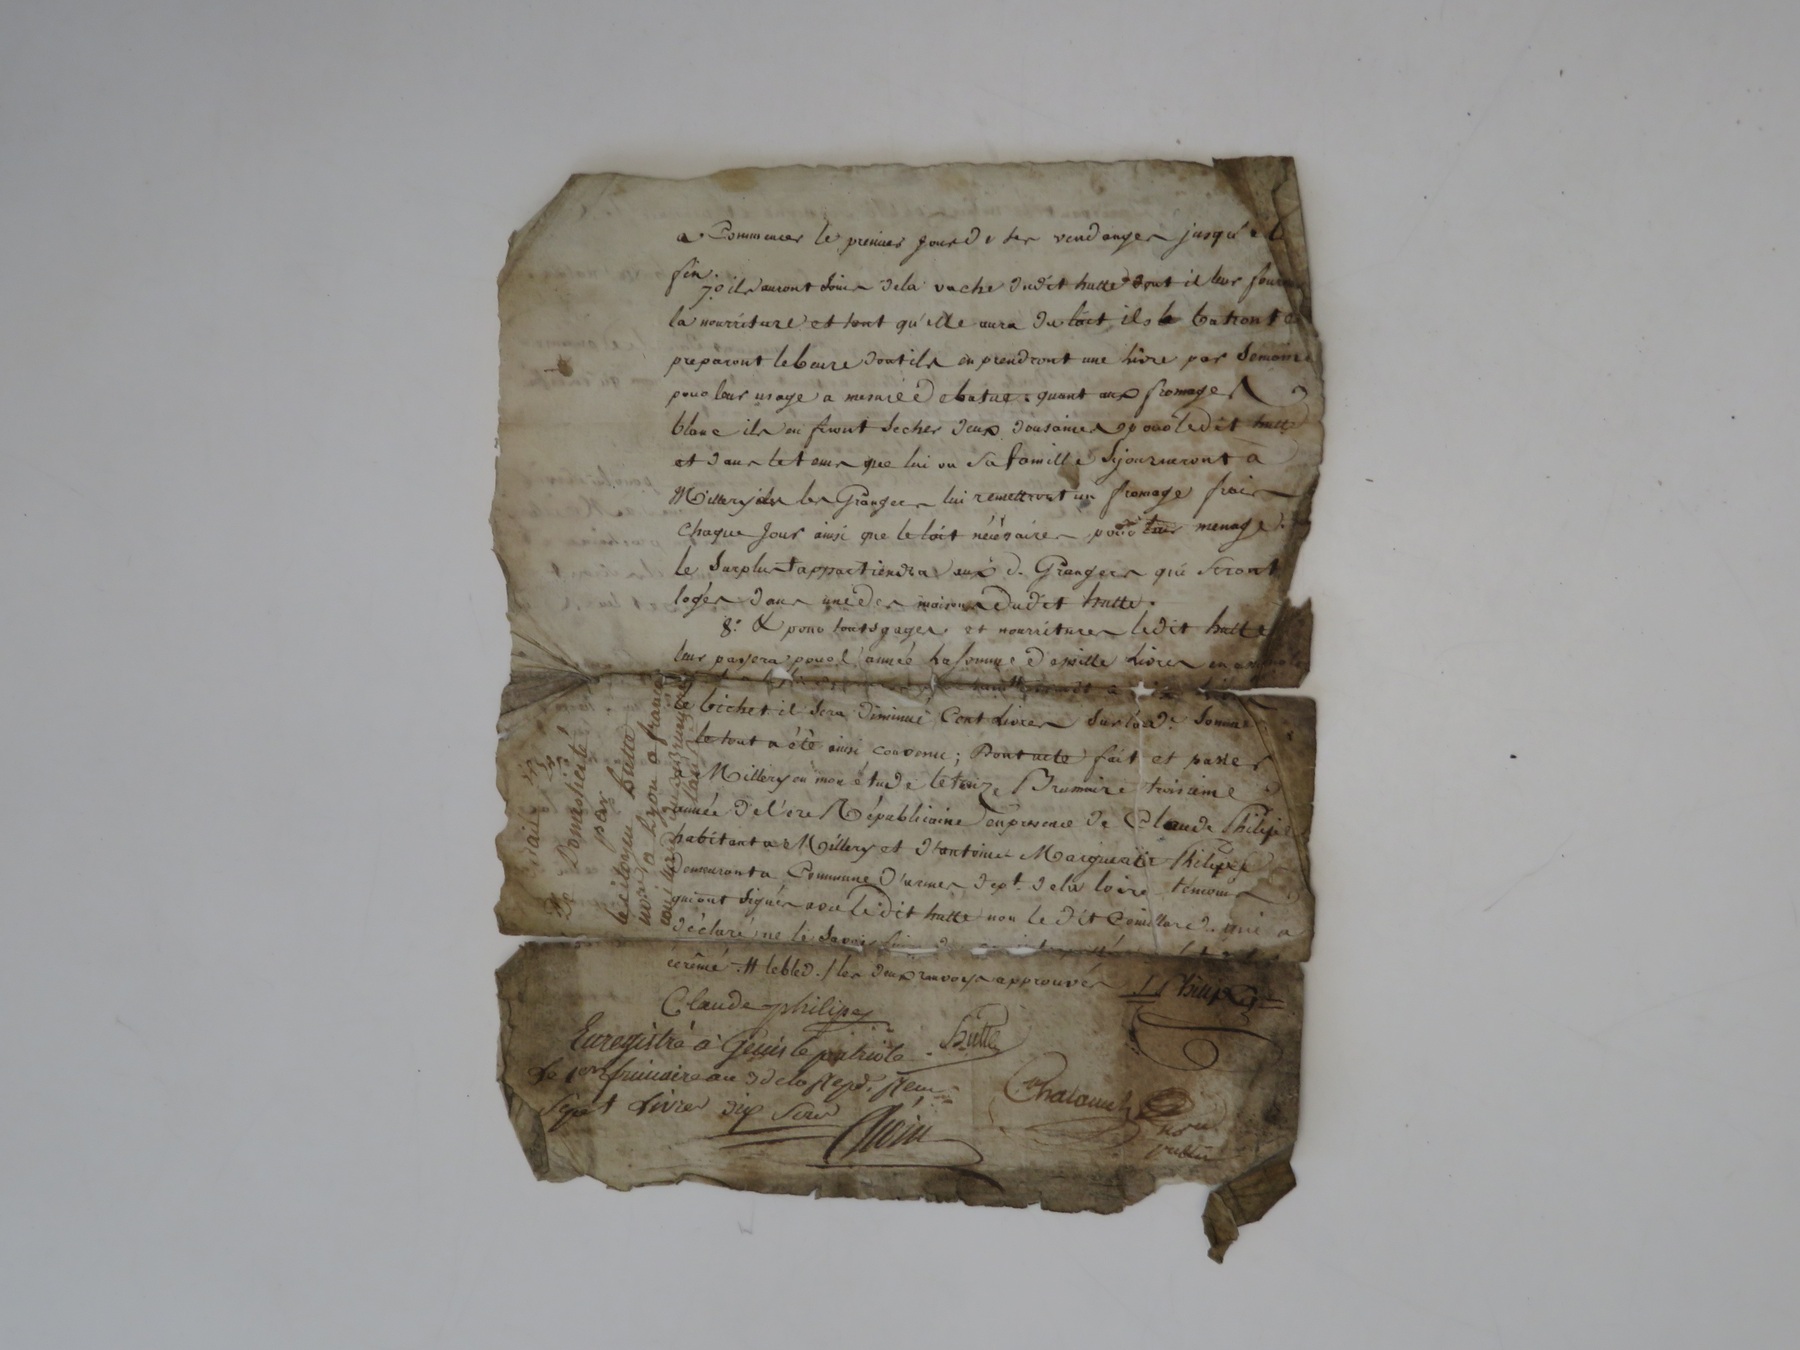 a Commencer le premier jour des vendanges jusqu'à la
fin.
7.° ils auront soin dela vache dudit hutte dont il leur
la nourriture et tant qu'elle aura du lait ils le batront et
preparont le beure dont ils en prendront une livre par semaine
pour leur usage a mesure quant aux fromages
blanc ils en feront secher deux dousaines pour ledit hutte
et dans le tems que lui ou sa famille sejourneront a
Millery les Grangers lui remettront un fromage frais
chaque jour ainsi que le lait nécésaire pour leur menage.
le Surplus appartiendra aux d. Grangers qui seront
logés dans une des maisons dudit hutte.
8.° & pour touts gages et nourritures ledit hutte
leur payera pour l'année la somme de mille livres en
le bichet il sera diminué Cent Livres sur la de. Somme
le tout a été ainsi convenu; Dont acte fait et passé
Millery en mon étude le Brumaire troisieme
année de l'ere Républicaine en presence de Claude Philipe
habitant a Millery et d'antoine Philipe
demeurant a Commune d'armes dept. dela loire témoins
qui ont signés avec ledit hutte non le dit qui a
déclaré ne le Savoir faire de
écrêmé # le bled. / les deux renvoys approuvés Philipe
Claude philipe
Hutte
Enregistré à Genis le patriote
Le 1er frimaire an 3 de la Rep.
Sept Livres dix Sous
not.
public
par
le citoyen hutte
a Lyon a francois